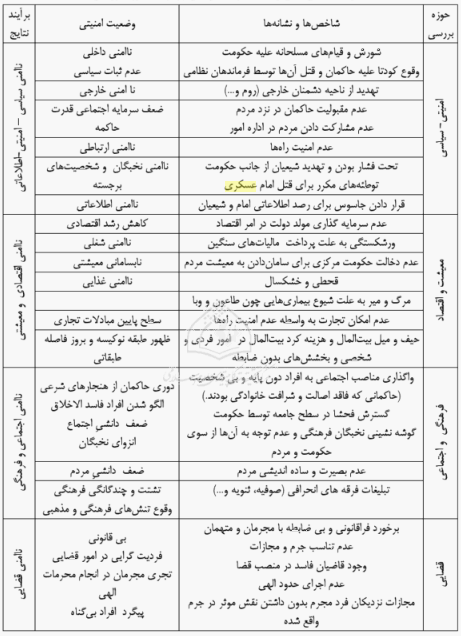 حوزه بررسی | شاخص‌ها و نشانه‌ها | وضعیت امنیتی | برآیند نتایج
امنیتی - سیاسی
شورش و قیام‌های مسلحانه علیه حکومت | ناامنی داخلی
وقوع کودتا علیه حاکمان و قتل آن‌ها توسط فرماندهان نظامی | عدم ثبات سیاسی
تهدید از ناحیه دشمنان خارجی (روم و...) | نا امنی خارجی
عدم مقبولیت حاکمان در نزد مردم | ضعف سرمایه اجتماعی قدرت
عدم مشارکت دادن مردم در اداره امور | حاکمه
عدم امنیت راه‌ها | ناامنی ارتباطی
تحت فشار بودن و تهدید شیعیان از جانب حکومت | ناامنی نخبگان و شخصیت‌های
توطئه‌های مکرر برای قتل امام عسکری | برجسته
قرار دادن جاسوس برای رصد اطلاعاتی امام و شیعیان | ناامنی اطلاعاتی
ناامنی سیاسی – امنیتی-اطلاعاتی
معیشت و اقتصاد
عدم سرمایه گذاری مولد دولت در امر اقتصاد | کاهش رشد اقتصادی
ورشکستگی به علت پرداخت مالیات‌های سنگین | ناامنی شغلی
عدم دخالت حکومت مرکزی برای سامان‌دادن به معیشت مردم | نابسامانی معیشتی
قحطی و خشکسال | ناامنی غذایی
مرگ و میر به علت شیوع بیماری‌هایی چون طاعون و وبا
عدم امکان تجارت به واسطه عدم امنیت راه‌ها | سطح پایین مبادلات تجاری
حیف و میل بیت‌المال و هزینه کرد بیت‌المال در امور فردی و | ظهور طبقه نوکیسه و بروز فاصله
شخصی و بخشش‌های بدون ضابطه | طبقاتی
ناامنی اقتصادی و معیشتی
فرهنگی و اجتماعی
واگذاری مناصب اجتماعی به افراد دون پایه و بی شخصیت | دوری حاکمان از هنجارهای شرعی
(حاکمانی که فاقد اصالت و شرافت خانوادگی بودند.) | الگو شدن افراد فاسد الاخلاق
گسترش فحشا در سطح جامعه توسط حکومت | ضعف دانشی اجتماع
گوشه نشینی نخبگان فرهنگی و عدم توجه به آن‌ها از سوی | انزوای نخبگان
حکومت و مردم
عدم بصیرت و ساده اندیشی مردم | ضعف دانشی مردم
تبلیغات فرقه های انحرافی (صوفیه، ثنویه و...) | تشتت و چندگانگی فرهنگی
وقوع تنش‌های فرهنگی و مذهبی
ناامنی اجتماعی و فرهنگی
قضایی
برخورد فراقانونی و بی ضابطه با مجرمان و متهمان | بی قانونی
عدم تناسب جرم و مجازات | فردیت گرایی در امور قضایی
وجود قاضیان فاسد در منصب قضا | تجری مجرمان در انجام محرمات
عدم اجرای حدود الهی | الهی
مجازات نزدیکان فرد مجرم بدون داشتن نقش موثر در جرم | پیگرد افراد بی‌گناه
واقع شده
ناامنی قضایی